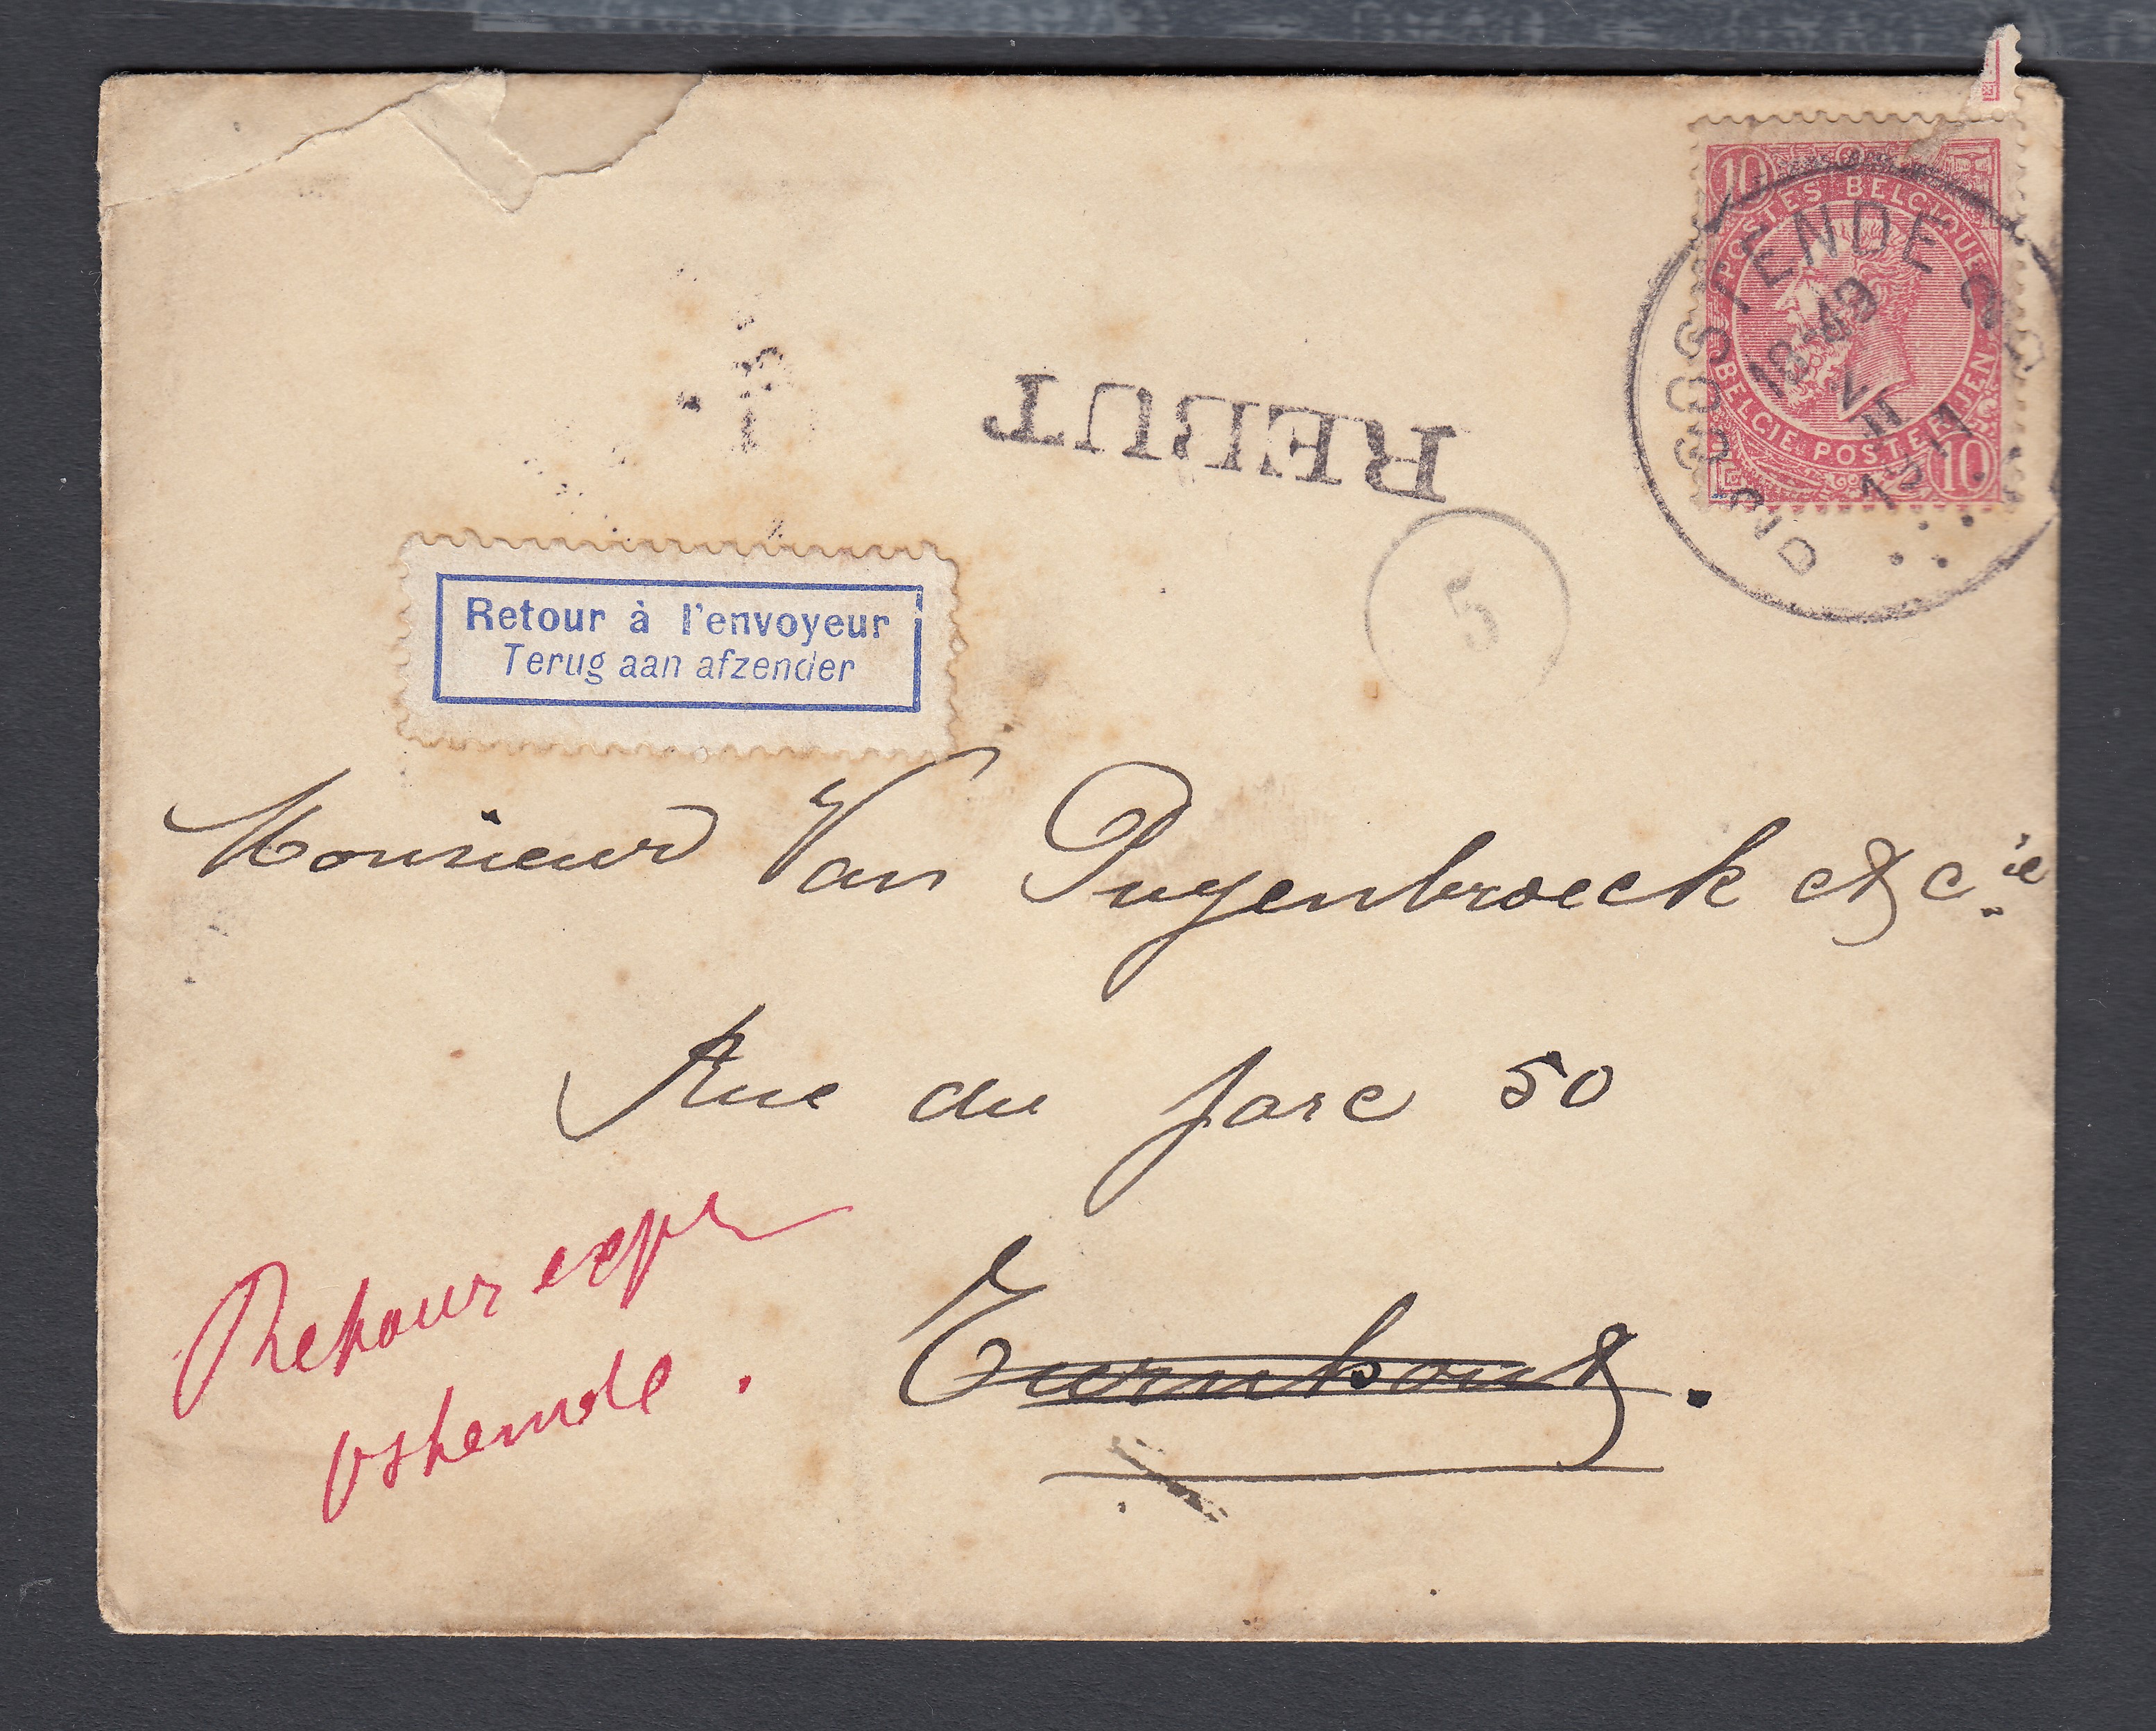 10
POSTES BELGIQUE
BELGIE POSTERIJEN
10
OOSTENDE
REBUT
5
Retour à l'envoyeur
Terug aan afzender
Monsieur Van Puyenbroeck et Cie
Rue du parc 50
Turnhout.
Retour expr
Ostende.